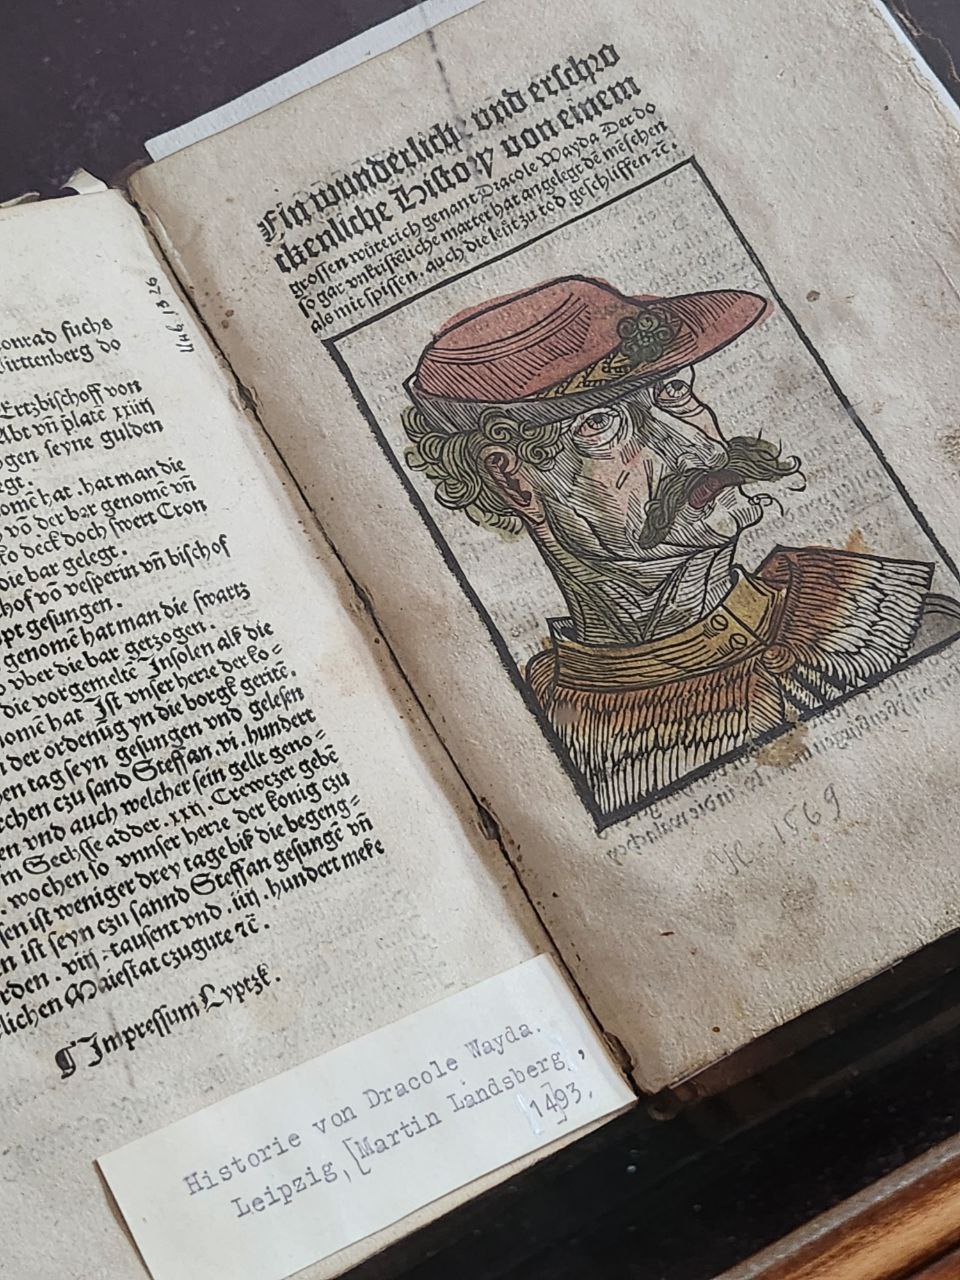 onrad fuchs
irttenberg do
Ertzbischoff von
Abt vñ platē xxiiij
gen seyne gulden
egt.
omē hat. hat man die
vō der bar genomē vñ
ko deck doch swert Cron
die bar gelegt.
hof vō vesperin vñ bischof
pt gesungen.
genomē hat man die swartz
vber die bar getzogen.
die vorgemeltē Insolen alß die
lomē hat Ist vnser herre der ko=
n der ordenūg yn die borgk geritē.
en tag seyn gesungen vnd gelesen
rchen czu sand Steffan. vi. hundert
en vnd auch welcher sein gellt geno=
m Sechsse adder. xxxij. Crewtzer gebē
. wochen so vnnser herre der konig czu
sen ist weniger drey tage biß die begeng=
n ist seyn czu sannd Steffan gesungē vñ
rden. viij. tausent vnd. iiij. hundert meße
lichen Maiestat czugute ⁊c̄.
¶ Impressum Lyptzk.
Historie von Dracole Wayda.
Leipzig,[Martin Landsberg,
1493,
Ein wunderliche vnd erschro
ckenliche History von einem
grossen wüterich genant Dracole Wayda Der do
so gar vnkristēliche marter hat angelegt dē mēschen
als mit spissen. auch die leüt zu tod geschliffen ⁊c̄.
1569